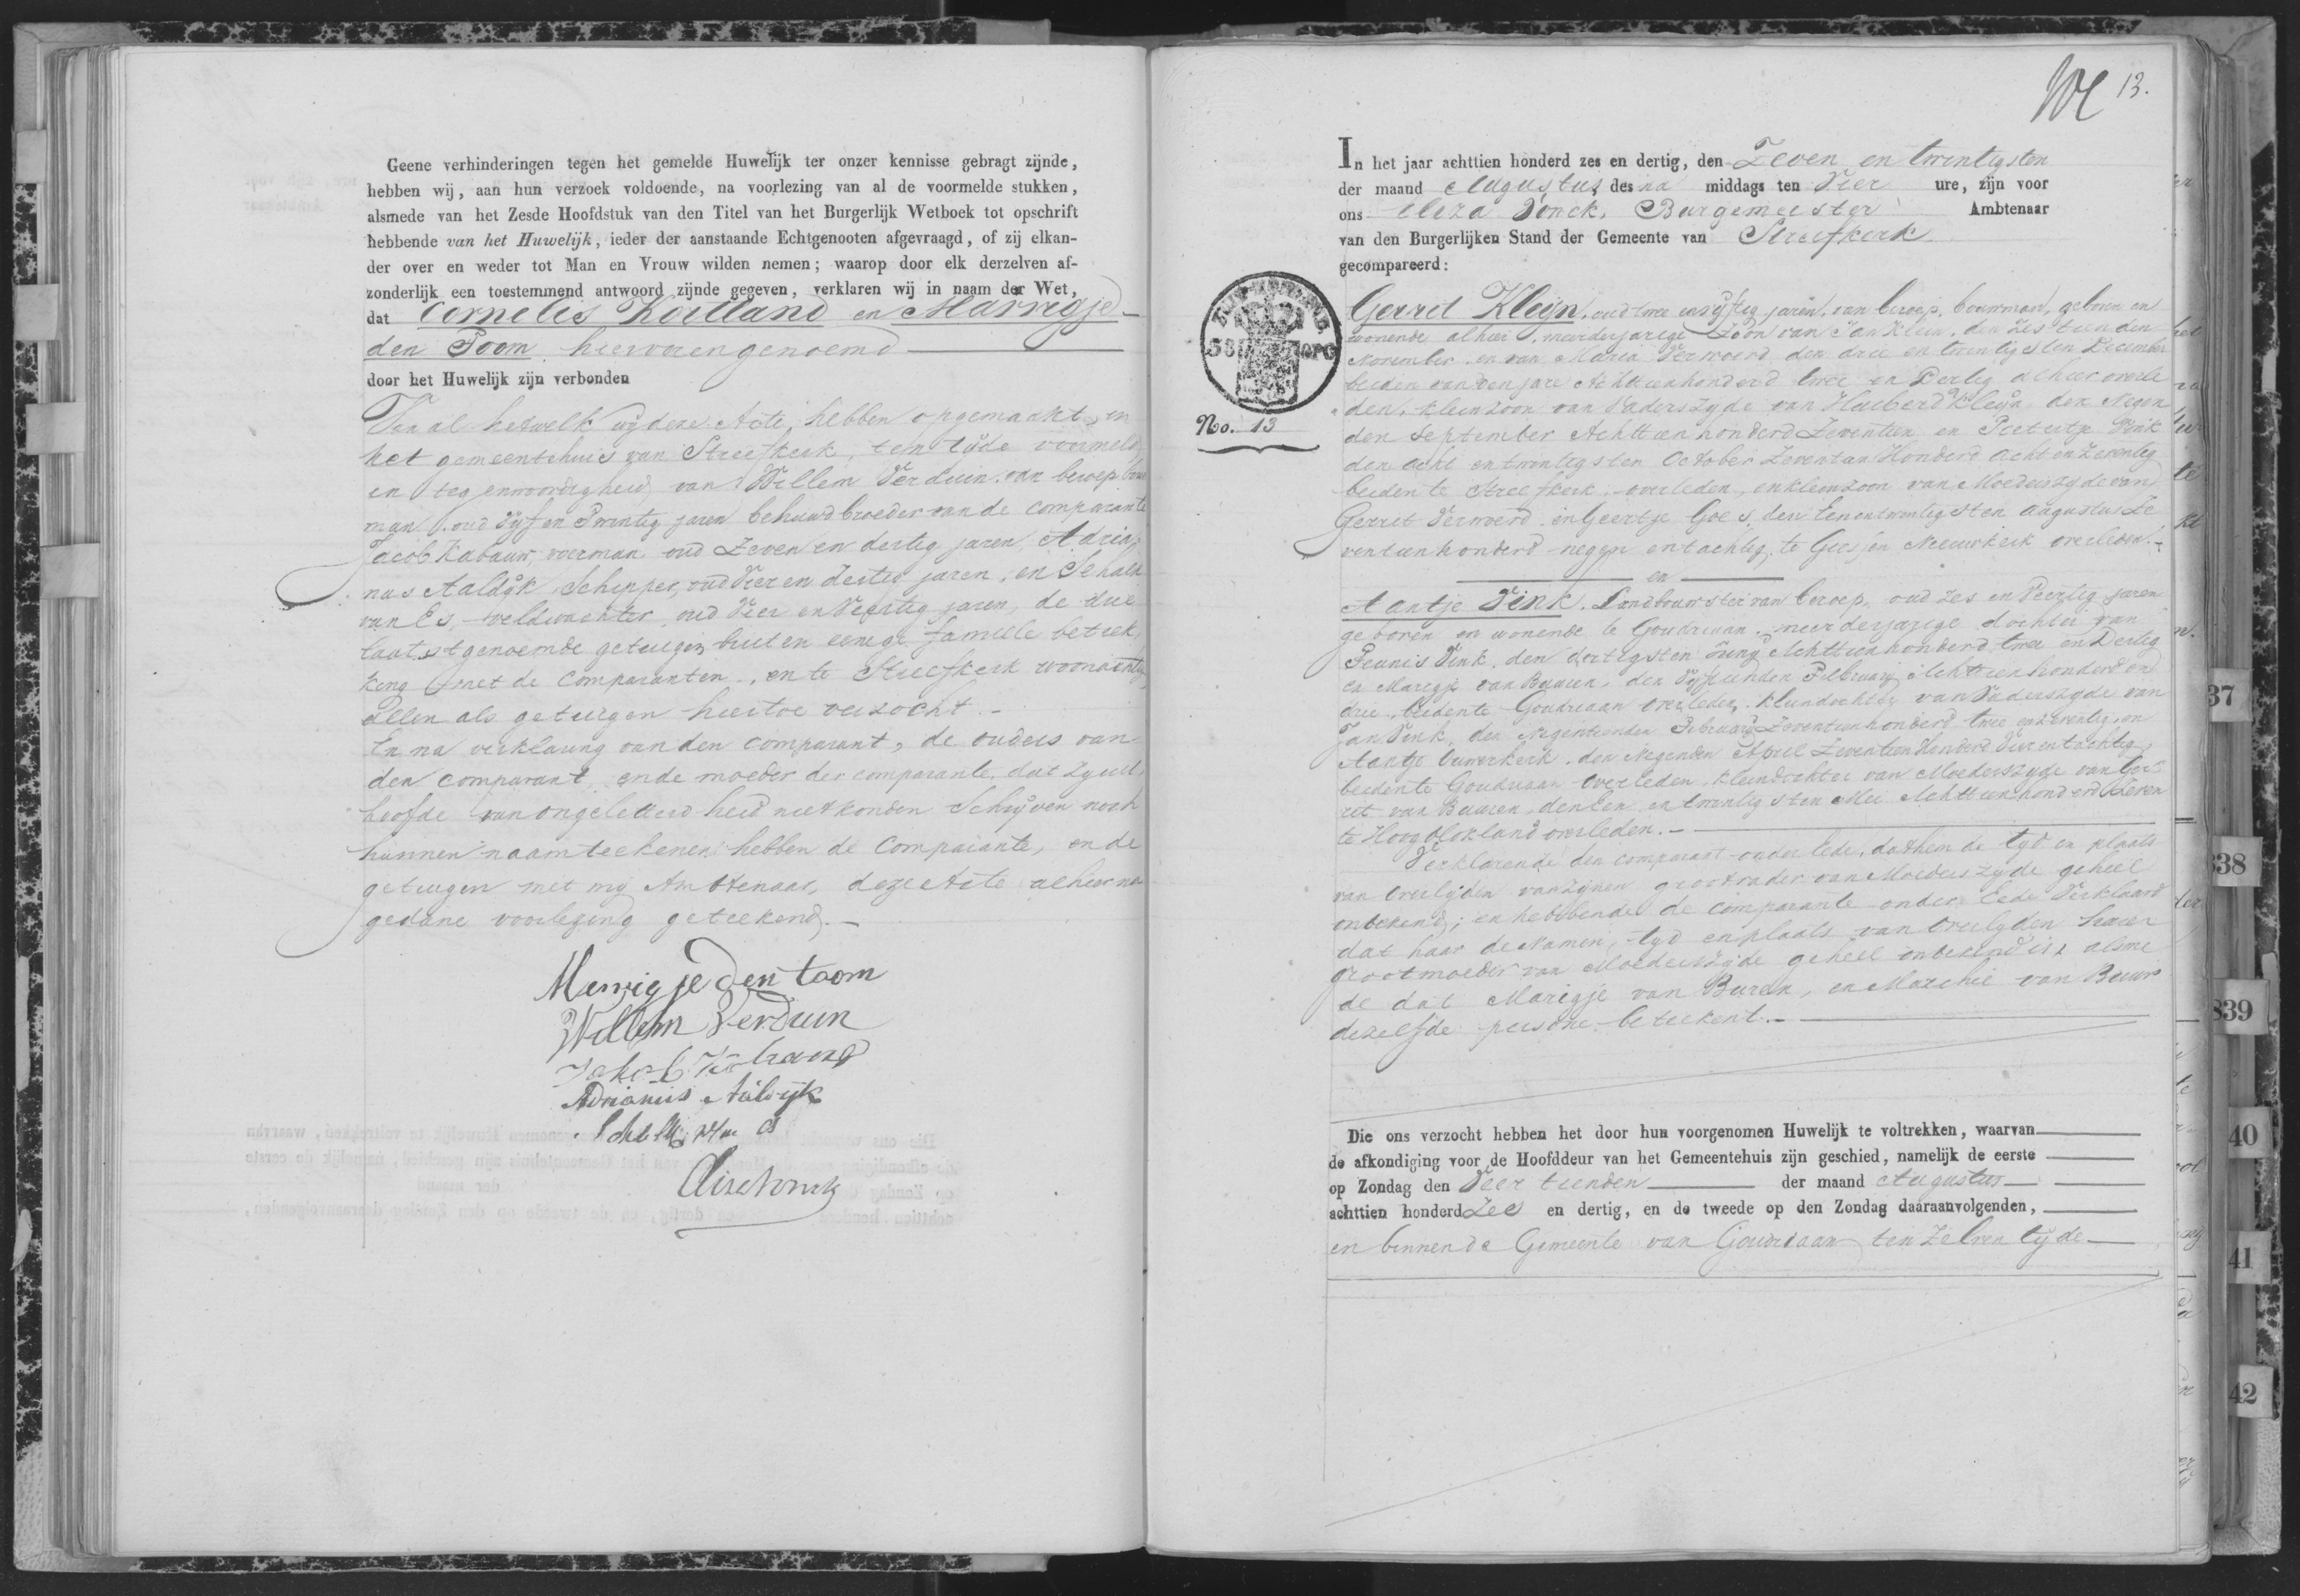 Geene verhinderingen tegen het gemelde Huwelijk ter onzer kennisse gebragt zijnde,
hebben wij, aan hun verzoek voldoende, na voorlezing van al de voormelde stukken,
alsmede van het Zesde Hoofdstuk van den Titel van het Burgerlijk Wetboek tot opschrift
hebbende van het Huwelijk, ieder der aanstaande Echtgenooten afgevraagd, of zij elkan-
der over en weder tot Man en Vrouw wilden nemen; waarop door elk derzelven af-
zonderlijk een toestemmend antwoord zijnde gegeven, verklaren wij in naam der Wet,
dat Cornelis Kortland en Marrigje
den Toom hiervoren genoemd
door het Huwelijk zijn verbonden
Van al hetwelk wij deze Acte hebben opgemaakt in
het gemeentehuis van Streefkerk, ten tijde voormeld
in tegenwoordigheid van Willem Verduin van beroep bouw
man oud Vijf en Twintig jaren behuwd broeder van de comparante
Jacob Kabauw, voerman oud Zeven en dertig jaren, Adria
nus Aaldijk Schipper, oud Vier en Zestig jaren, en Schalk
van Es, veldwachter, oud Vier en Veertig jaren, de drie
laatstgenoemde getuigen buiten eenige familie betrek
king met de Comparanten, en te Streefkerk woonachtig
allen als getuigen hiertoe verzocht.
En na verklaring van den comparant, de ouders van
den comparant en de moeder der comparante, dat zij uit
hoofde van ongeletterdheid niet konden Schrijven noch
hunnen naam teekenen hebben de Comparante, en de
getuigen met mij Ambtenaar, deze Acte alhier na
gedane voorlezing geteekend.
Merrigje den toom
Willem Verduin
Jakob Kabauw
Adrianus Aaldijk
Schalk van Es
Eliza Vonck
13.
In het jaar achttien honderd zes en dertig, den Zeven en twintigsten
der maand Augustus des na middags ten Vier ure, zijn voor
ons Eliza Vonck, Burgemeester Ambtenaar
van den Burgerlijken Stand der Gemeente van Streefkerk
gecompareerd:
No. 13
Gerrit Kleijn, oud twee en vijftig jaren, van beroep, bouwman, geboren en
wonende alhier, meerderjarige Zoon van Jan Klein, den zestienden
November en van Maria Verwoerd den drie en twintigsten December
beiden van den jare Achttienhonderd twee en Dertig alhier overle
den, kleinzoon van Vaderszijde van Huiberd Kleijn den Negen
den September Achttienhonderd Zeventien en Pietertje Vink
den acht en twintigsten October Zeventien Honderd acht en Zeventig
beiden te Streefkerk overleden, en kleinzoon van Moederszijde van
Gerrit Verwoerd en Geertje Goes, den Een en twintigsten augustus Ze
ventienhonderd negen en tachtig, te Giessen Nieuwkerk overleden.
en
Aantje Vink, Landbouwster van beroep, oud zes en Veertig jaren
geboren en wonende te Goudriaan, meerderjarige dochter van
Teunis Vink, den dertigsten Junij Achttienhonderd twee en Dertig
en Marigje van Buuren, den Vijftienden Februarij Achttienhonderd en
drie, beiden te Goudriaan overleden, kleindochter van Vaderszijde van
Jan Vink, den Negentienden Februarij Zeventienhonderd twee en zeventig, en
Aantje Ouwerkerk, den Negenden April Zeventien Honderd Vier en tachtig,
beiden te Goudriaan overleden, kleindochter van Moederszijde van Ger
rit van Buuren, den Een en twintigsten Mei Achttienhonderd Zeven
te Hoog Blokland overleden.
Verklarende den comparant onder Eede, dat hem de tyd en plaats
van overlijden van zijnen grootvader van Moeders zyde geheel
onbekend; en hebbende de comparante onder Eede Verklaard
dat haar de Namen, tyd en plaats van overlijden harer
grootmoeder van Moederszijde geheel onbekend is, alsme
de dat Marigje van Buren, en Marchie van Buure
dezelfde persone beteekent.
Die ons verzocht hebben het door hun voorgenomen Huwelijk te voltrekken, waarvan
de afkondiging voor de Hoofddeur van het Gemeentehuis zijn geschied, namelijk de eerste
op Zondag den Veertienden der maand Augustus
achttien honderd Zes en dertig, en de tweede op den Zondag daaraanvolgenden,
en binnen de Gemeente van Goudriaan ten Zelven tijde
37
838
839
40
41
42